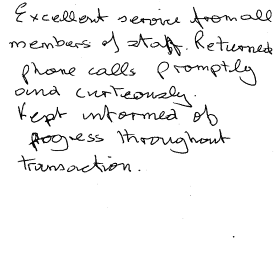 Excellent service from all
members of staff. Returned
phone calls promptly
and curteously.
Kept informed of
progress throughout
transaction.